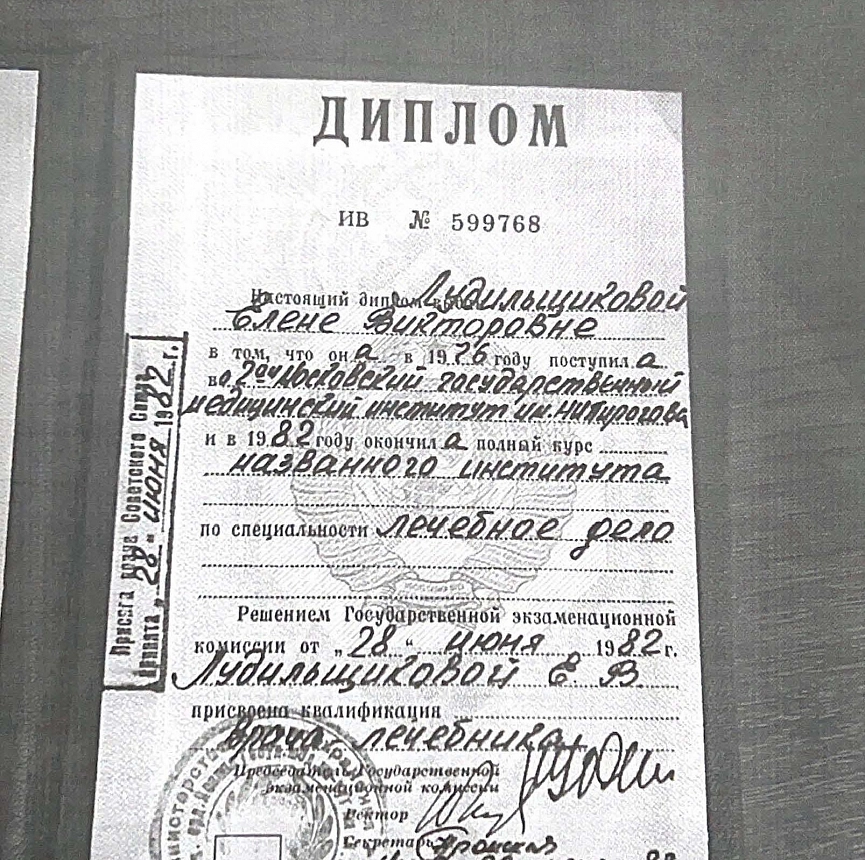 ДИПЛОМ
ИВ № 599768
Настоящий диплом выдан Лудильщиковой
Елене Викторовне
в том, что она в 1976 году поступила
в 2ой Московский государственный
медицинский институт им. Н.И. Пирогова
и в 1982 году окончила полный курс
названного института
по специальности лечебное дело
Решением Государственной экзаменационной
комиссии от „28“ июня 1982 г.
Лудильщиковой Е. В.
присвоена квалификация
врача-лечебника
Председатель Государственной
экзаменационной комиссии
Ректор
Секретарь
Присяга врача Советского Союза
принята „28“ июня 1982 г.